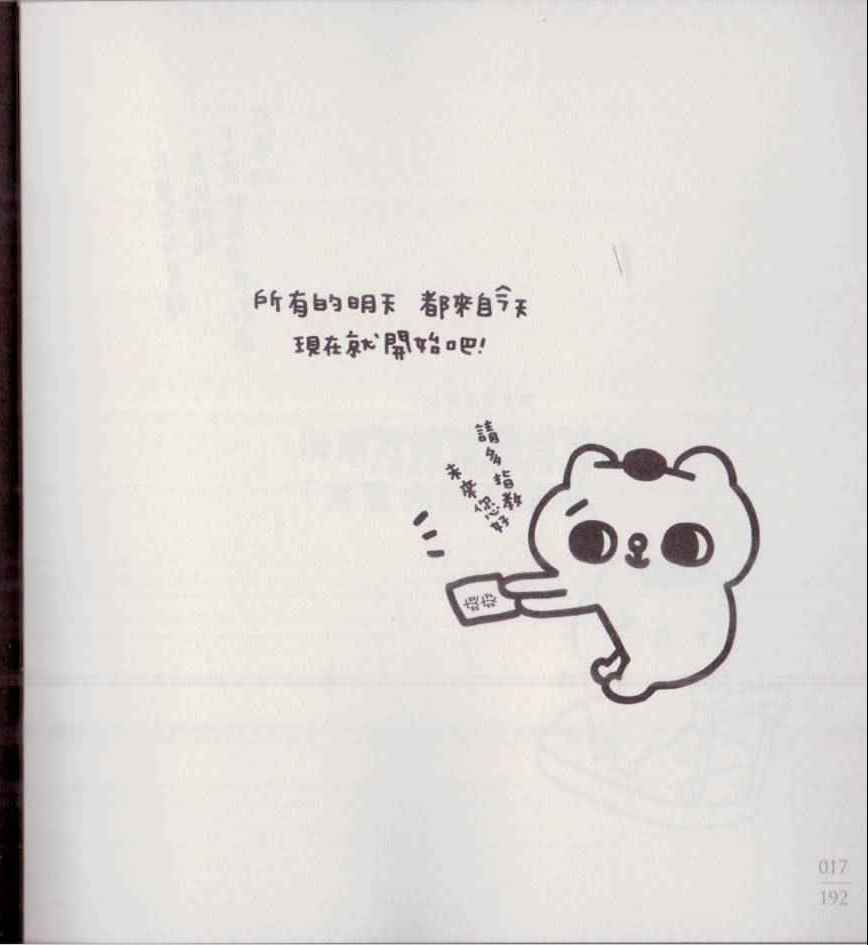 所有的明天 都來自今天
現在就開始吧!
請多指教
未來您好
017
192